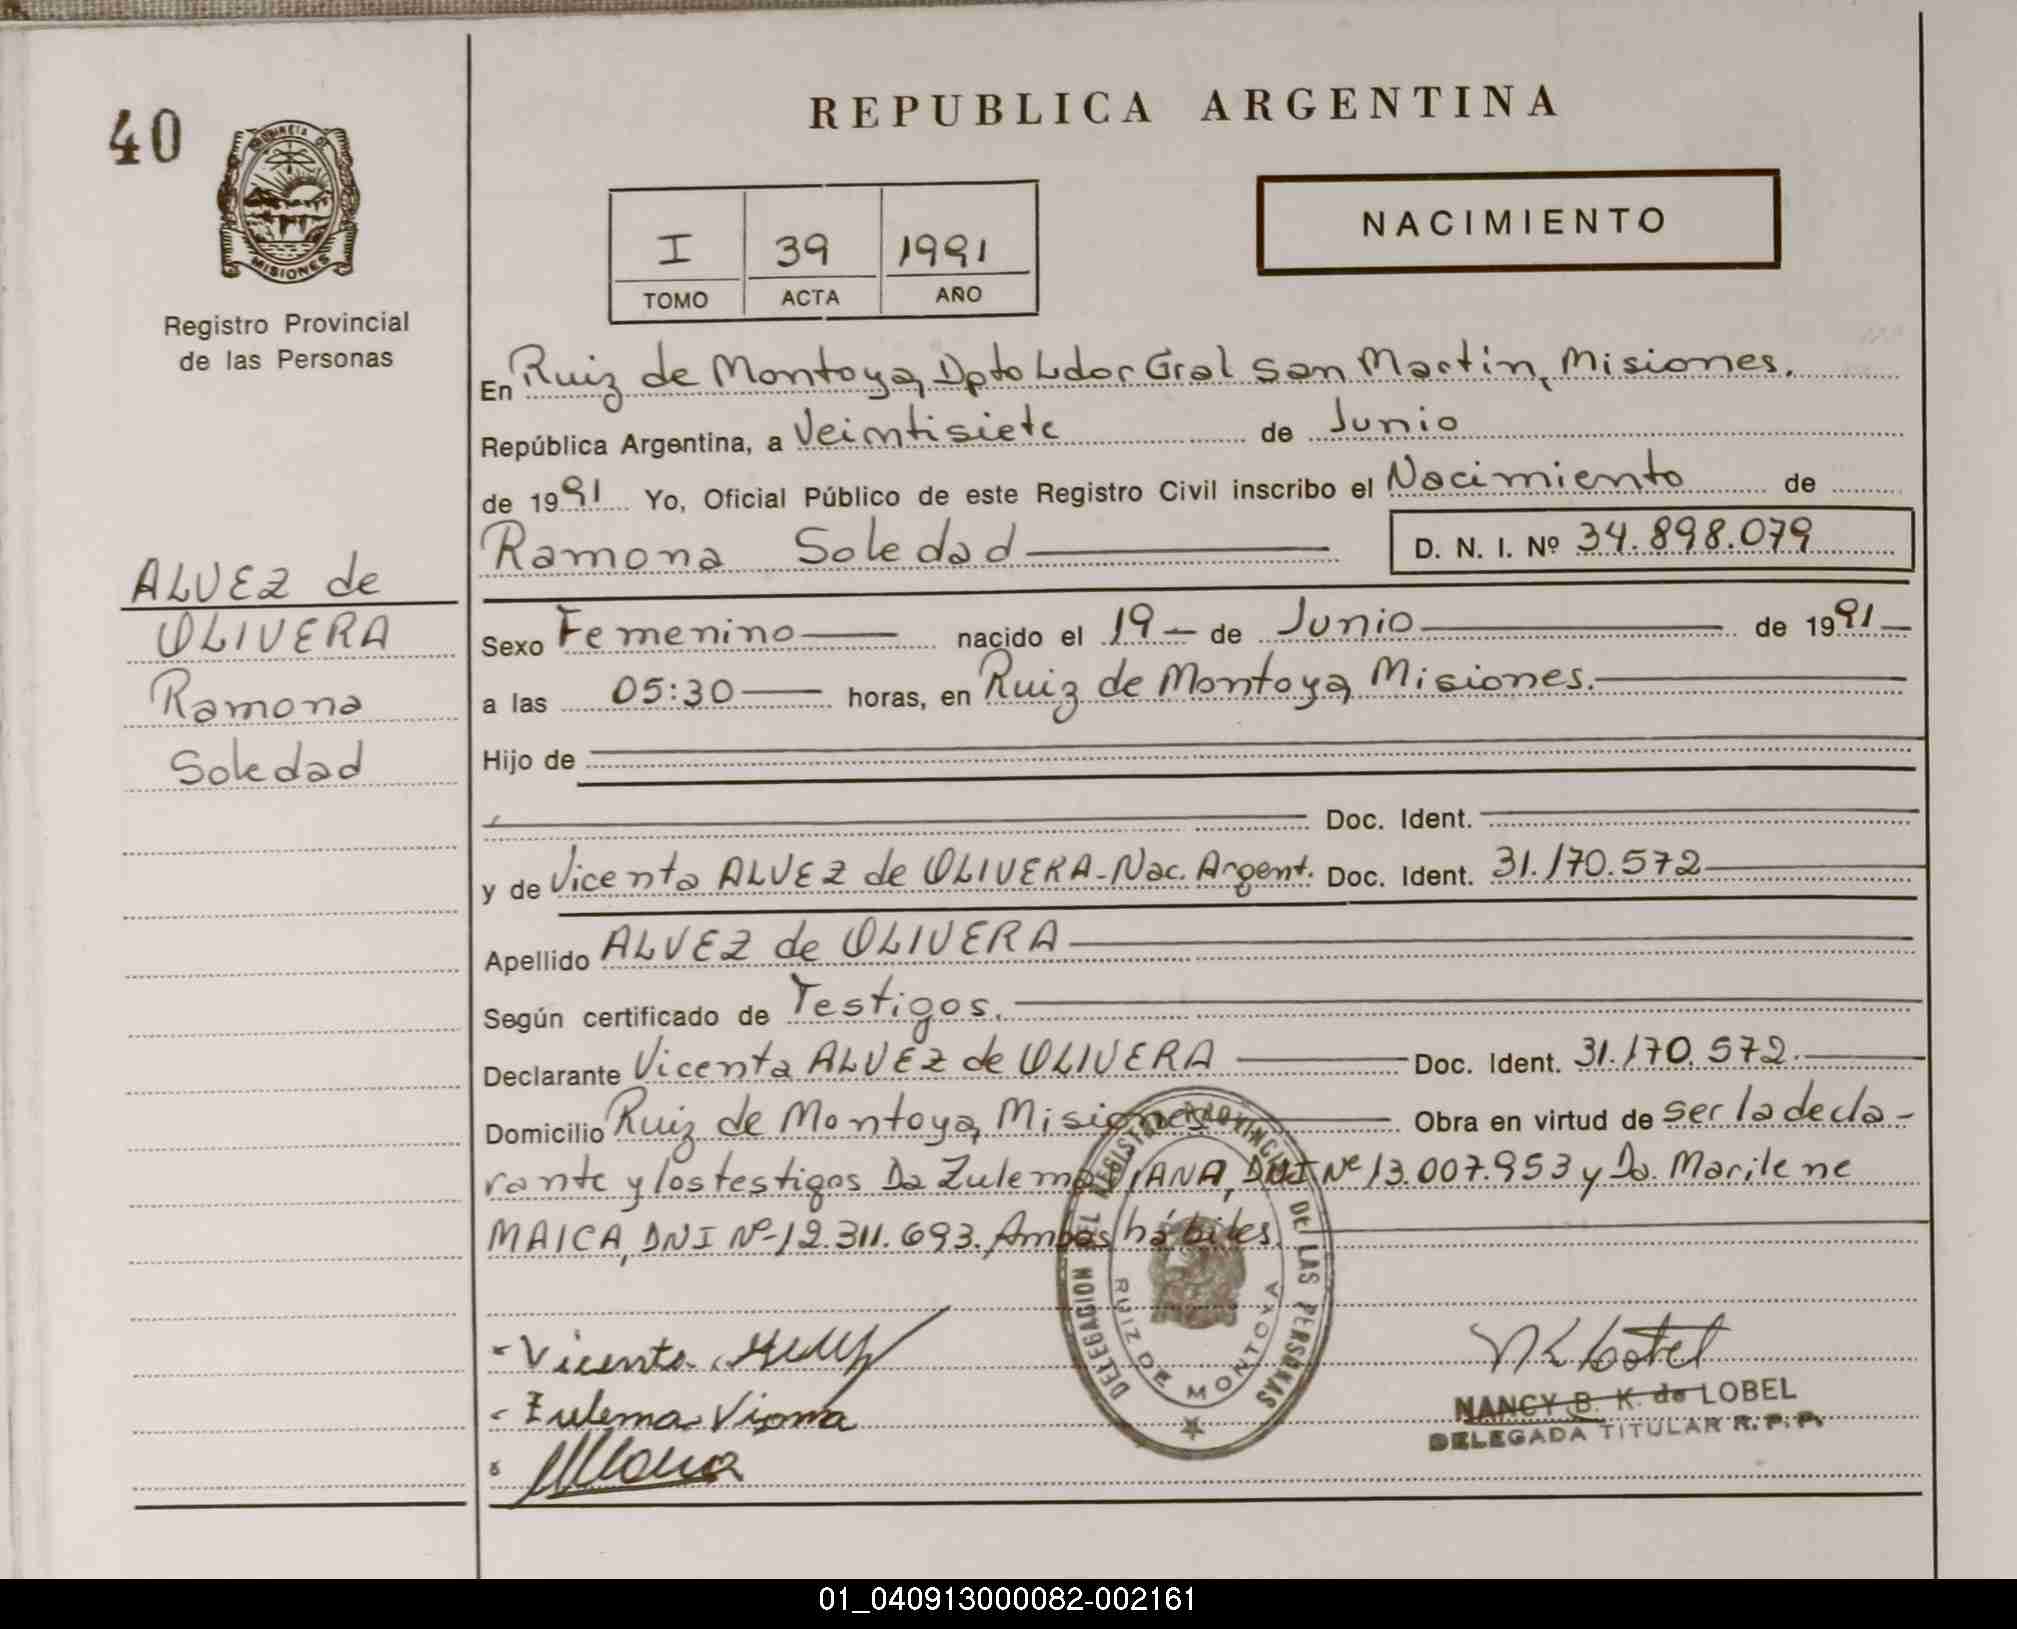 40
PROVINCIA DE
MISIONES
Registro Provincial
de las Personas
ALVEZ de
OLIVERA
Ramona
Soledad
REPUBLICA ARGENTINA
I 39 1991
TOMO ACTA AÑO
NACIMIENTO
En Ruiz de Montoya, Dpto Ldor Gral San Martín, Misiones.
República Argentina, a Veintisiete de Junio
de 1991 Yo, Oficial Público de este Registro Civil inscribo el Nacimiento de
Ramona Soledad D. N. I. Nº 34.898.079
Sexo Femenino nacido el 19 — de Junio de 1991
a las 05:30 horas, en Ruiz de Montoya, Misiones.
Hijo de
Doc. Ident.
y de Vicenta ALVEZ de OLIVERA - Nac. Argent. Doc. Ident. 31.170.572
Apellido ALVEZ de OLIVERA
Según certificado de Testigos.
Declarante Vicenta ALVEZ de OLIVERA Doc. Ident. 31.170.572.
Domicilio Ruiz de Montoya, Misiones Obra en virtud de ser la decla-
rante y los testigos Da Zulema VIANA, DNI Nº 13.007.953 y Da. Marilene
MAICA, DNI Nº 12.311.693. Ambas hábiles.
DELEGACION DEL REGISTRO PROVINCIAL DE LAS PERSONAS
RUIZ DE MONTOYA
- Vicenta
- Zulema Viana
NANCY B. K. de LOBEL
DELEGADA TITULAR R. P. P.
01_040913000082-002161